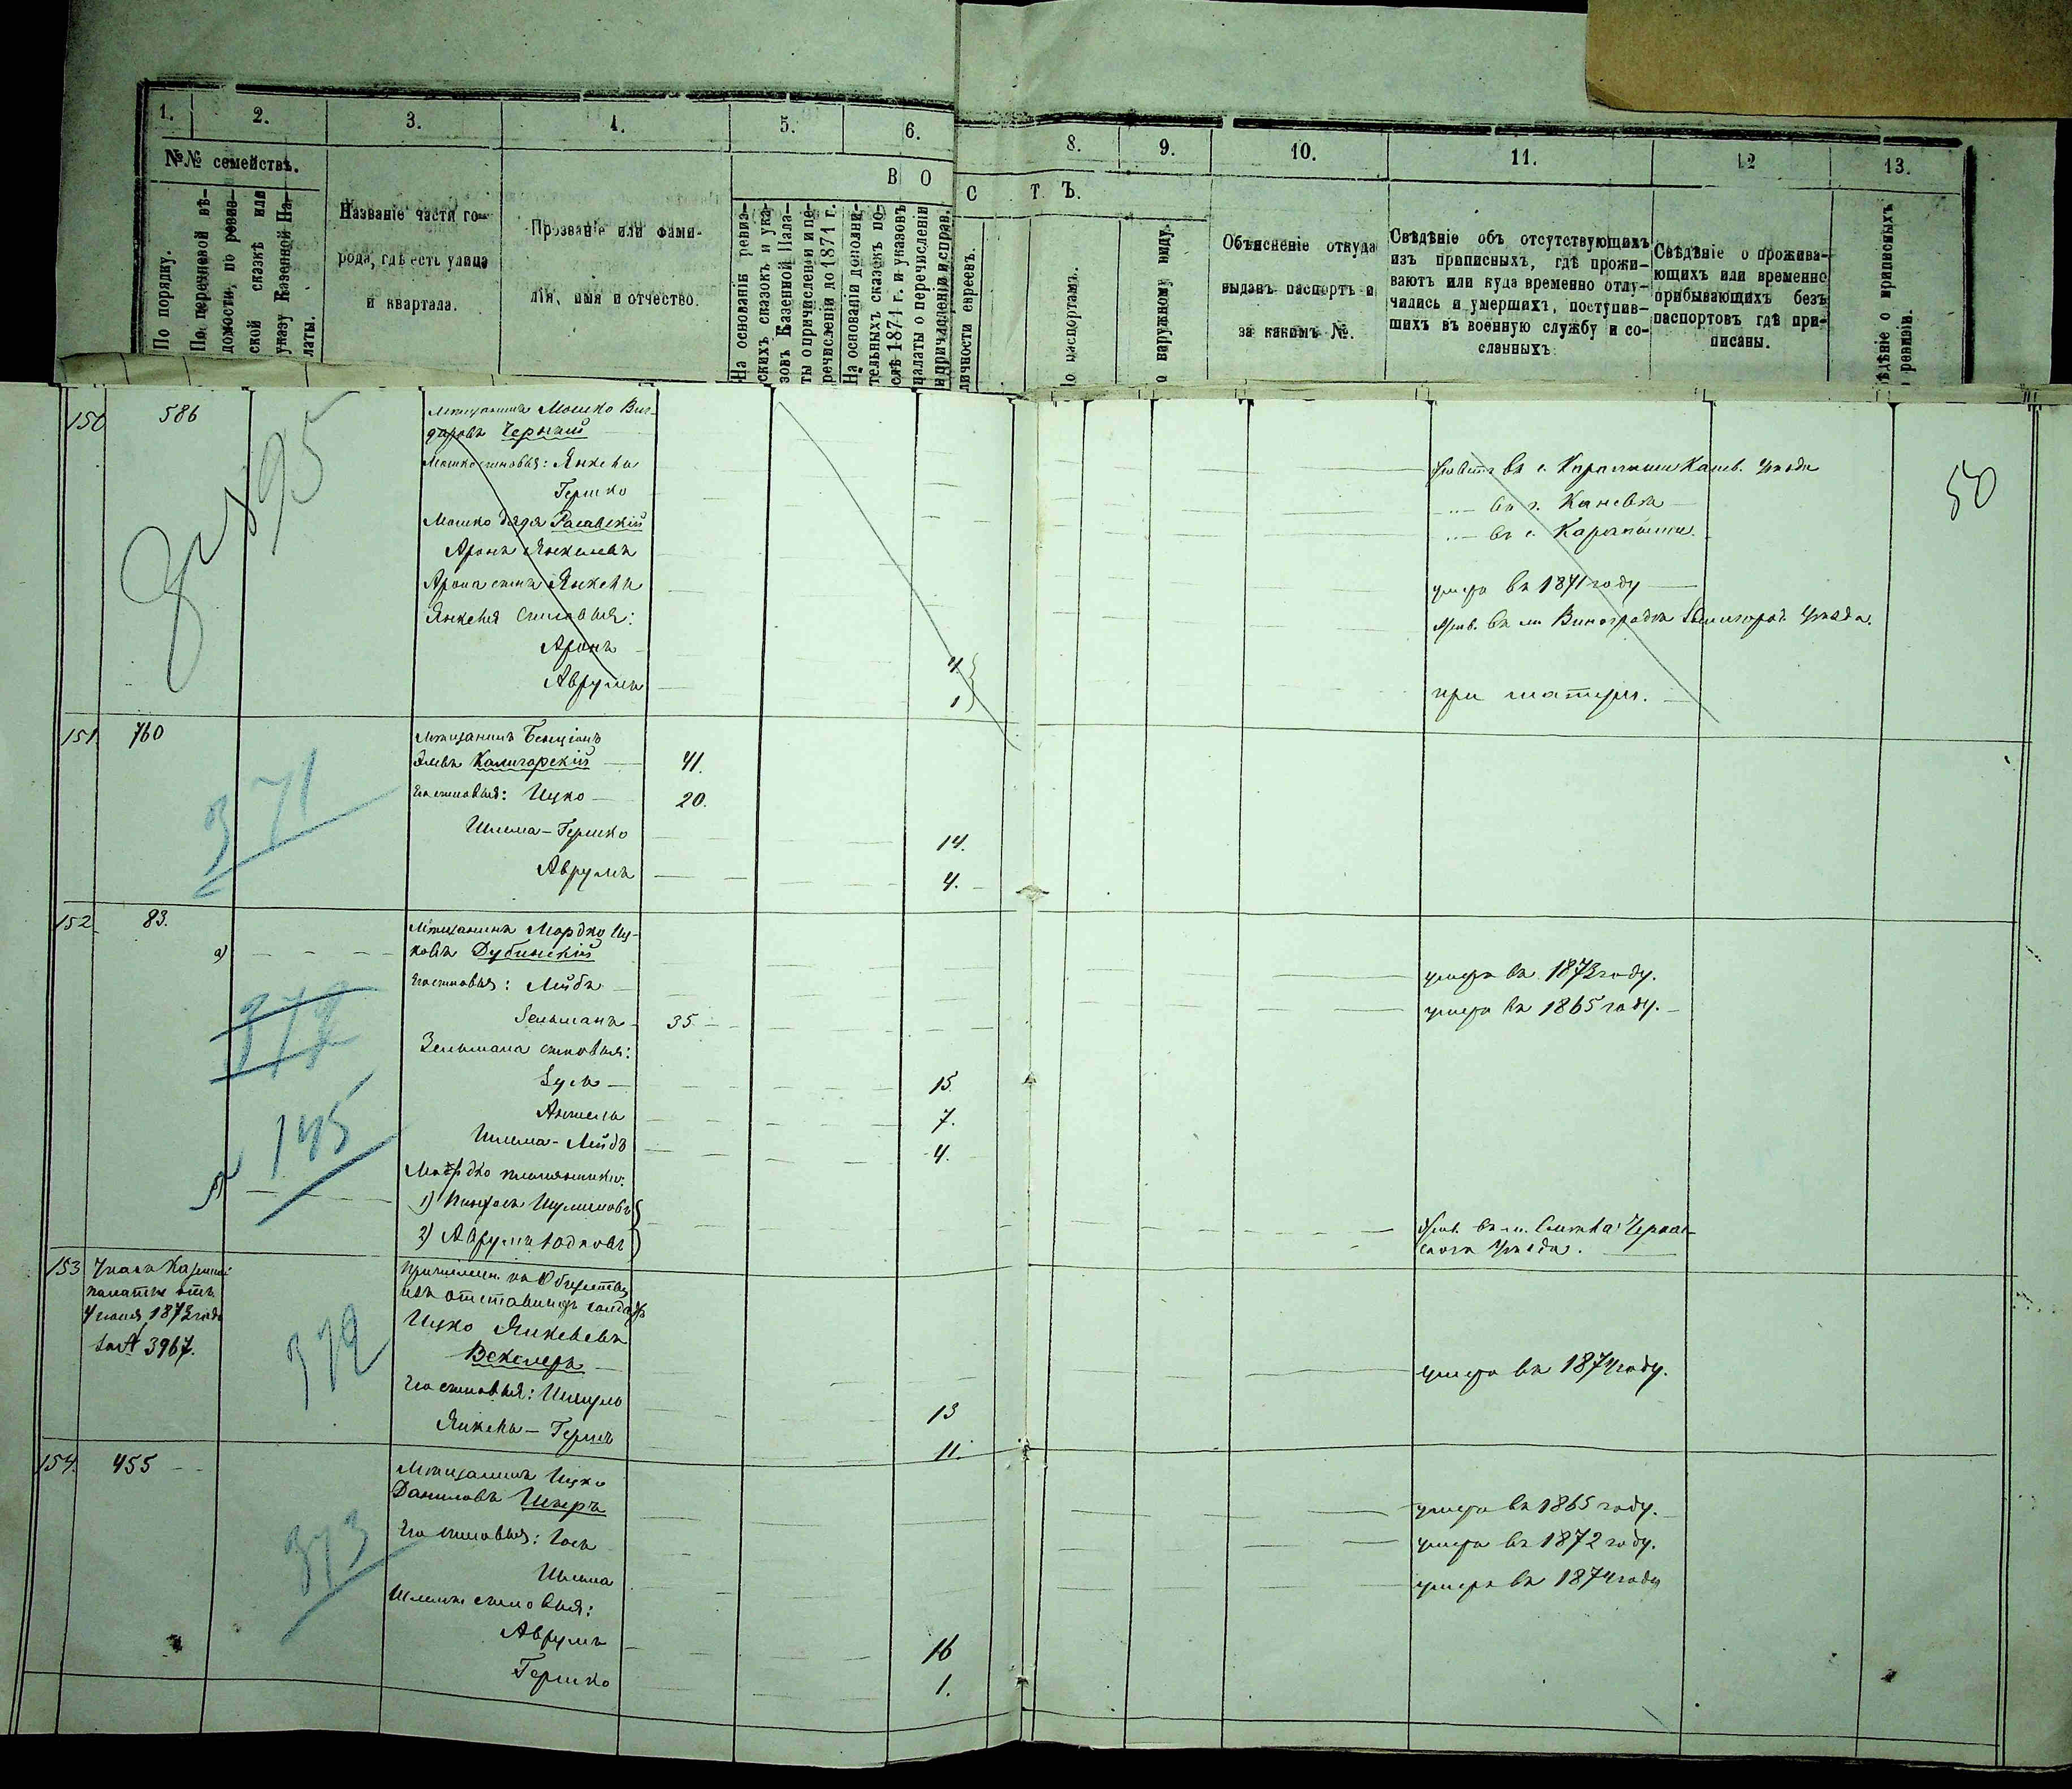 1. 2. 3. 4. 5. 6. 8. 9. 10. 11. 12 13.
№№ семействъ.
В О С Т Ъ.
По порядку.
По перечневой вѣ-
домости, по ревиз-
ской сказкѣ или
указу Казенной Па-
латы.
Названіе части го-
рода, гдѣ есть улица
и квартала.
Прозваніе или фами-
лія, имя и отчество.
На основаніи ревиз-
скихъ сказокъ и ука-
зовъ Казенной Пала-
ты о причисленіи и пе-
речисленіи до 1874 г.
На основаніи дополни-
тельныхъ сказокъ по-
слѣ 1874 г. и указовъ
палаты о перечисленіи
и причисленіи и справ.
личности евреевъ.
о паспортамъ.
о наружному виду.
Объясненіе откуда
выданъ паспортъ и
за какимъ №.
Свѣдѣніе объ отсутствующихъ
изъ приписныхъ, гдѣ прожи-
ваютъ или куда временно отлу-
чились и умершихъ, поступив-
шихъ въ военную службу и со-
сланныхъ
Свѣдѣніе о прожива-
ющихъ или временно
прибывающихъ безъ
паспортовъ гдѣ при-
писаны.
ѣдѣніе о приписныхъ
ревизіи.
50
150 586
95
Мѣщанинъ Мошко Виг-
доровъ Черный
Мошко сыновья: Янкель
Гершко
Мошко дядя Расавскій
Аронъ Янкелевъ
Арона сынъ Янкель
Янкеля сыновья:
Аронъ 4
Аврумъ 1
въ с. Карапыши Канев. уѣзда
въ г. Каневѣ
въ с. Карапыши.
умеръ въ 1871 году
Жив. въ м. Виноградѣ Звенигород. уѣзда.
при матери.
151. 760
371
Мѣщанинъ Бенціонъ
Калигорскій 41.
Его сыновья: Ицко 20.
Шлема-Гершко 14.
Аврумъ 4.
152 83.
а)
372
145
Мѣщанинъ Мордко Иц-
ковъ Дубинскій умеръ въ 1873 году.
Его сыновья: Лейбъ умеръ въ 1865 году.
Зельманъ 35
Зельмана сыновья:
Зусь 15.
Аншель 7.
Шлема-Лейбъ 4.
Мордко племянники:
1) Шулимовъ
2) Аврумъ Юдковъ
Жив. въ м. Смѣла Черкас-
скаго уѣзда.
153 Указъ Казенной
палаты отъ
4 іюня 1873 года
за № 3967.
372
Причислен. къ Обществу
изъ отставныхъ солдатъ
Ицко Янкелевъ
Векслеръ умеръ въ 1874 году.
Его сыновья: Шмуль 13
Янкель-Гершъ 11.
154. 455
373
Мѣщанинъ Ицко
Даниловъ Шкеръ умеръ въ 1865 году.
Его сыновья: Іось умеръ въ 1872 году.
Шлема умеръ въ 1874 году
Шлемы сыновья:
Аврумъ 16
Гершко 1.